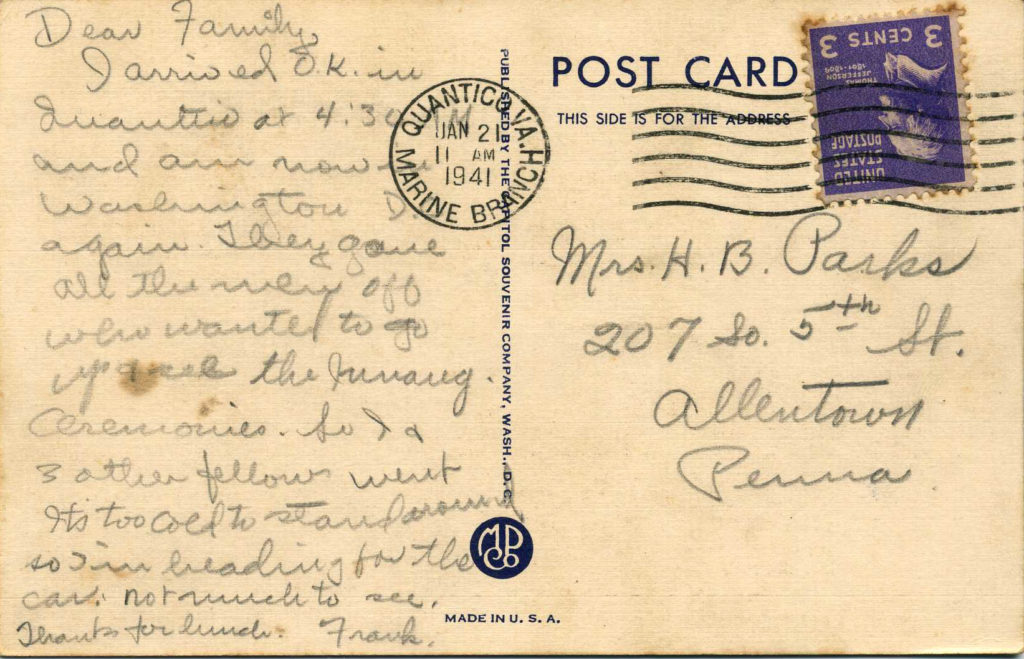 Dear Family,
I arrived O.K. in
Quantico at 4:30 AM
and am now in
Washington D.
again. They gave
all the men off
who wanted to go
up &amp; see the Innaug.
Ceremonies. So I &amp;
3 other fellows went
Its too cold to stand around
so I'm heading for the
car. not much to see.
Thanks for lunch. Frank.
PUBLISHED BY THE CAPITOL SOUVENIR COMPANY, WASH., D. C.
QUANTICO, VA.
JAN 21
11 AM
1941
MARINE BRANCH
POST CARD
THIS SIDE IS FOR THE ADDRESS
3 CENTS 3
THOMAS
JEFFERSON
1801-1809
UNITED
STATES
POSTAGE
Mrs. H. B. Parks
207 So. 5th St.
Allentown
Penna
MADE IN U. S. A.